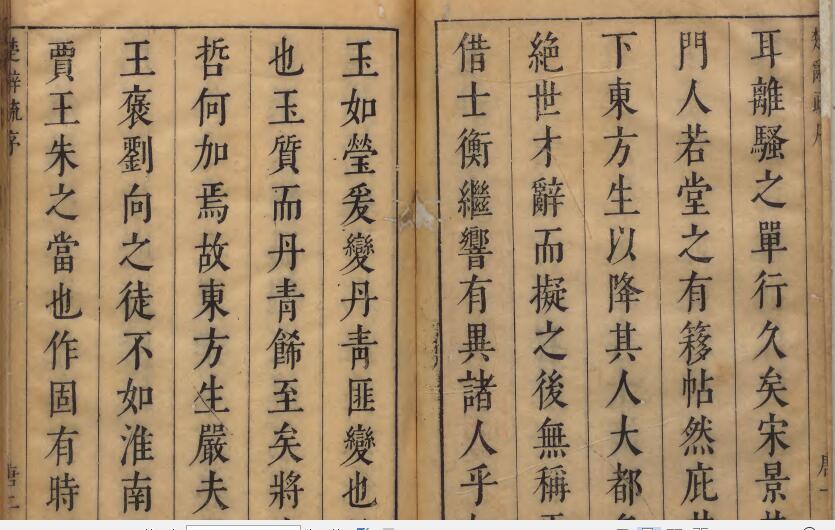 耳離騷之單行久矣宋景
門人若堂之有簃帖然庇
下東方生以降其人大都
絶世才辭而擬之後無稱
借士衡繼響有異諸人乎
玉如瑩爰變丹青匪變也
也玉質而丹青餙至矣將
哲何加焉故東方生嚴夫
王褒劉向之徒不如淮南
賈王朱之當也作固有時
楚辭疏序
唐二